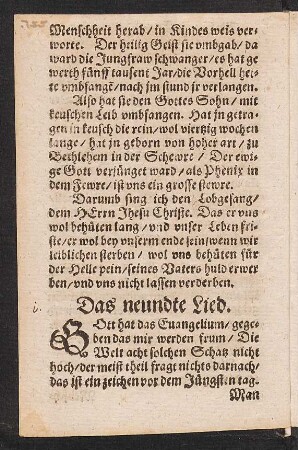 Menschheit herab / in Kindes weis ver-
worte. Der heilig Geist sie vmbgab / da
ward die Jungfraw schwanger / es hat ge
werth fünff tausent Jar / die Vorhell het-
te vmbfangẽ / nach im stund jr verlangen.
Also hat sie den Gottes Sohn / mit
keuschen Leib vmbfangen. Hat jn getra-
gen in keusch die rein / wol viertzig wochen
lange / hat jn geborn von hoher art / zu
Bethlehem in der Schewre / Der ewi-
ge Gott verjünget ward / als Phenix in
dem Fewre / ist vns ein grosse stewre.
Darumb sing ich den Lobgesang /
dem HErrn Jhesu Christe. Das er vns
wol behüten lang / vnd vnser Leben fri-
ste / er wol bey vnserm ende sein / wenn wir
leiblichen sterben / wol vns behüten für
der Helle pein / seines Vaters huld erwer
ben / vnd vns nicht lassen verderben.
Das neundte Lied.
GOtt hat das Euangelium / gege-
ben das wir werden frum / Die
Welt acht solchen Schatz nicht
hoch / der meist theil fragt nichts darnach /
das ist ein zeichen vor dem Jüngsten tag.
Man